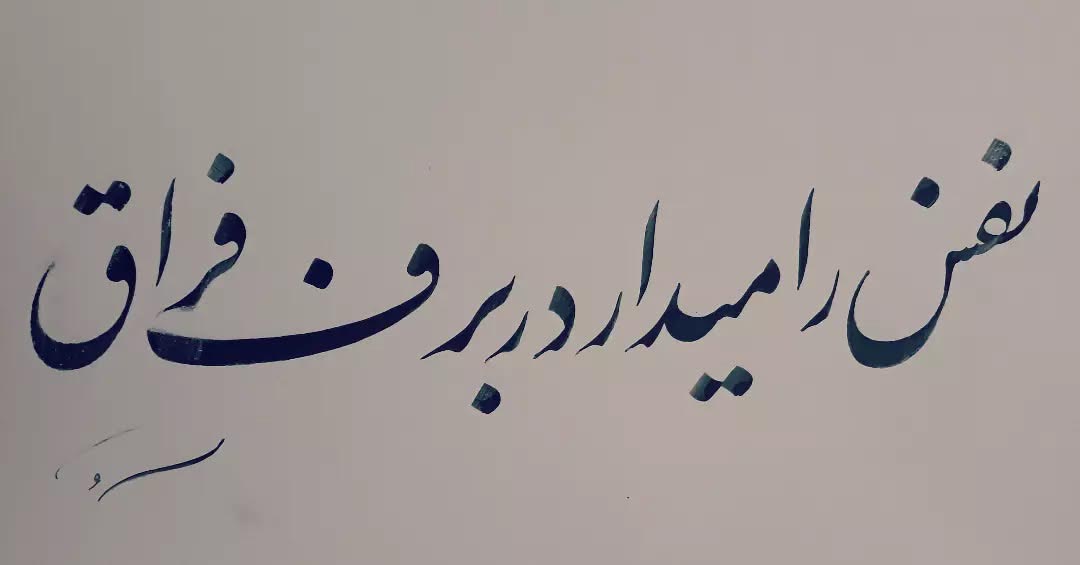 نفس را میدارد در برف فراق